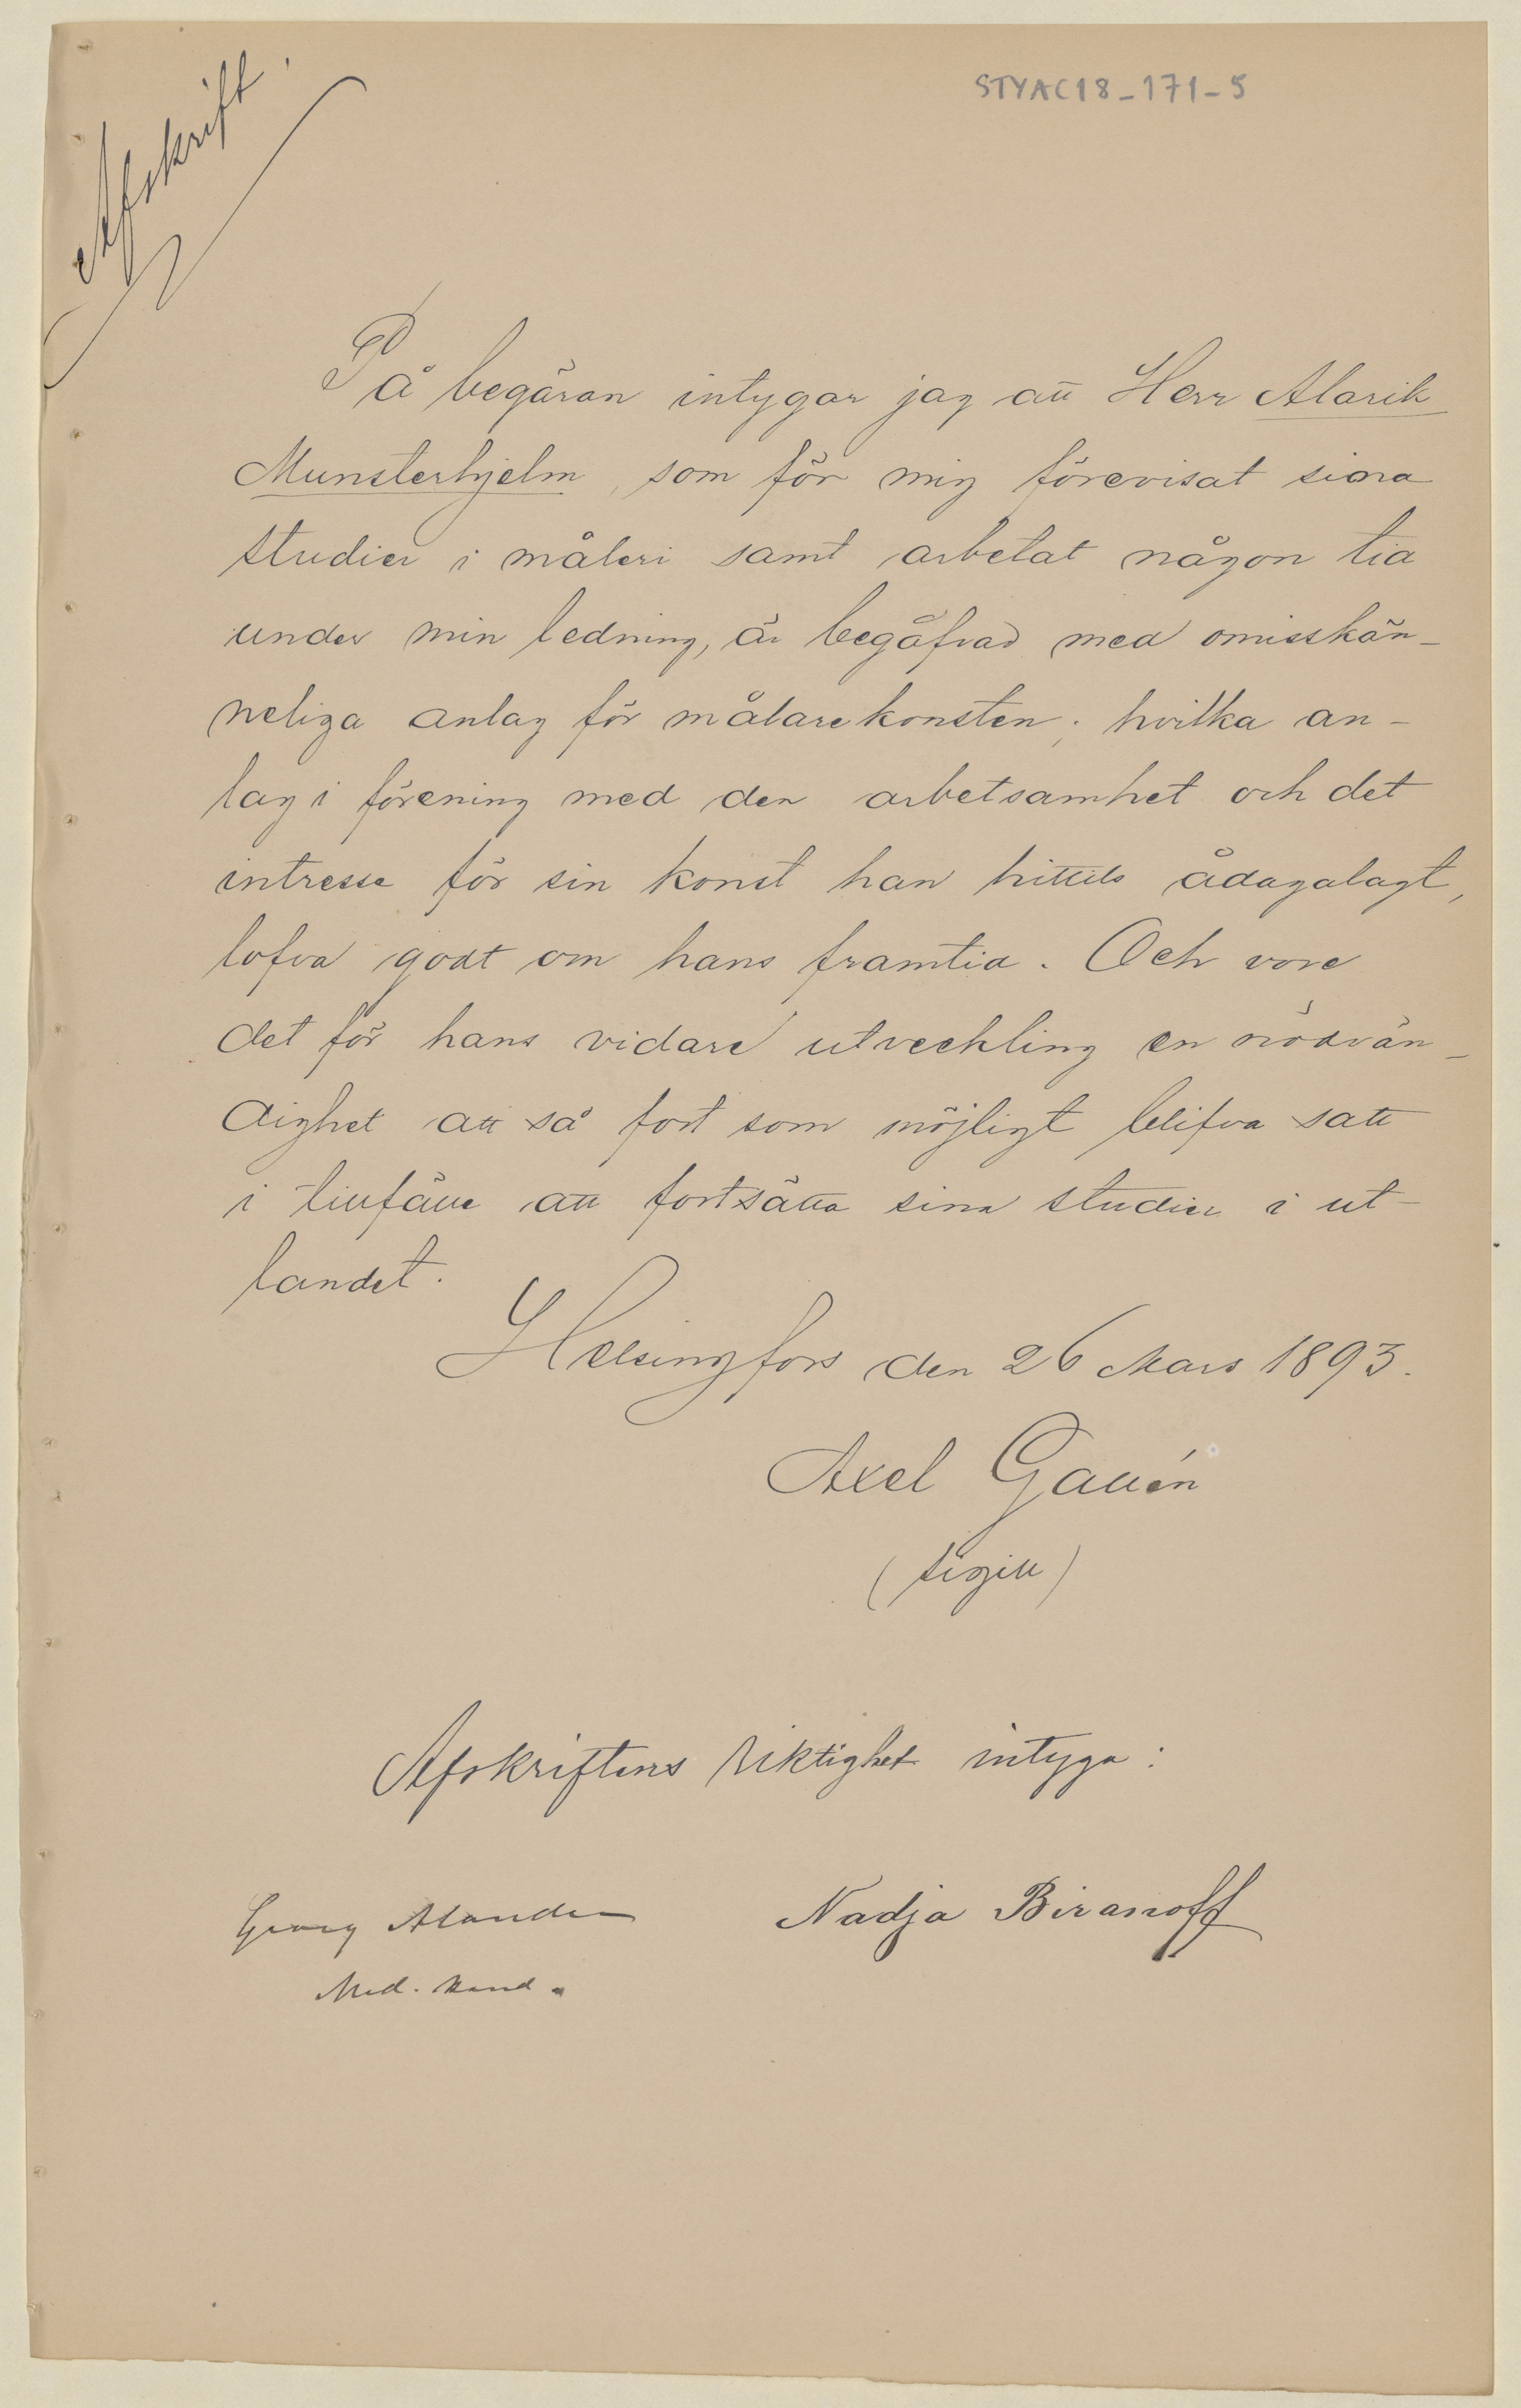 Afskrift.
STYAC18_171_5
På begäran intygar jag att Herr Alarik
Munsterhjelm, som för mig förevisat sina
studier i måleri samt arbetat någon tid
under min ledning, är begåfvad med omisskän-
neliga anlag för målarekonsten; hvilka an-
lag i förening med den arbetsamhet och det
intresse för sin konst han hittils ådagalagt,
lofva godt om hans framtid. Och vore
det för hans vidare utveckling en nödvän-
dighet att så fort som möjligt blifva satt
i tillfälle att fortsätta sina studier i ut-
landet.
Helsingfors den 26 Mars 1893.
Axel Gallén
(sigill)
Afskriftens riktighet intyga:
Georg Alander Nadja Biranoff
Med. kand.